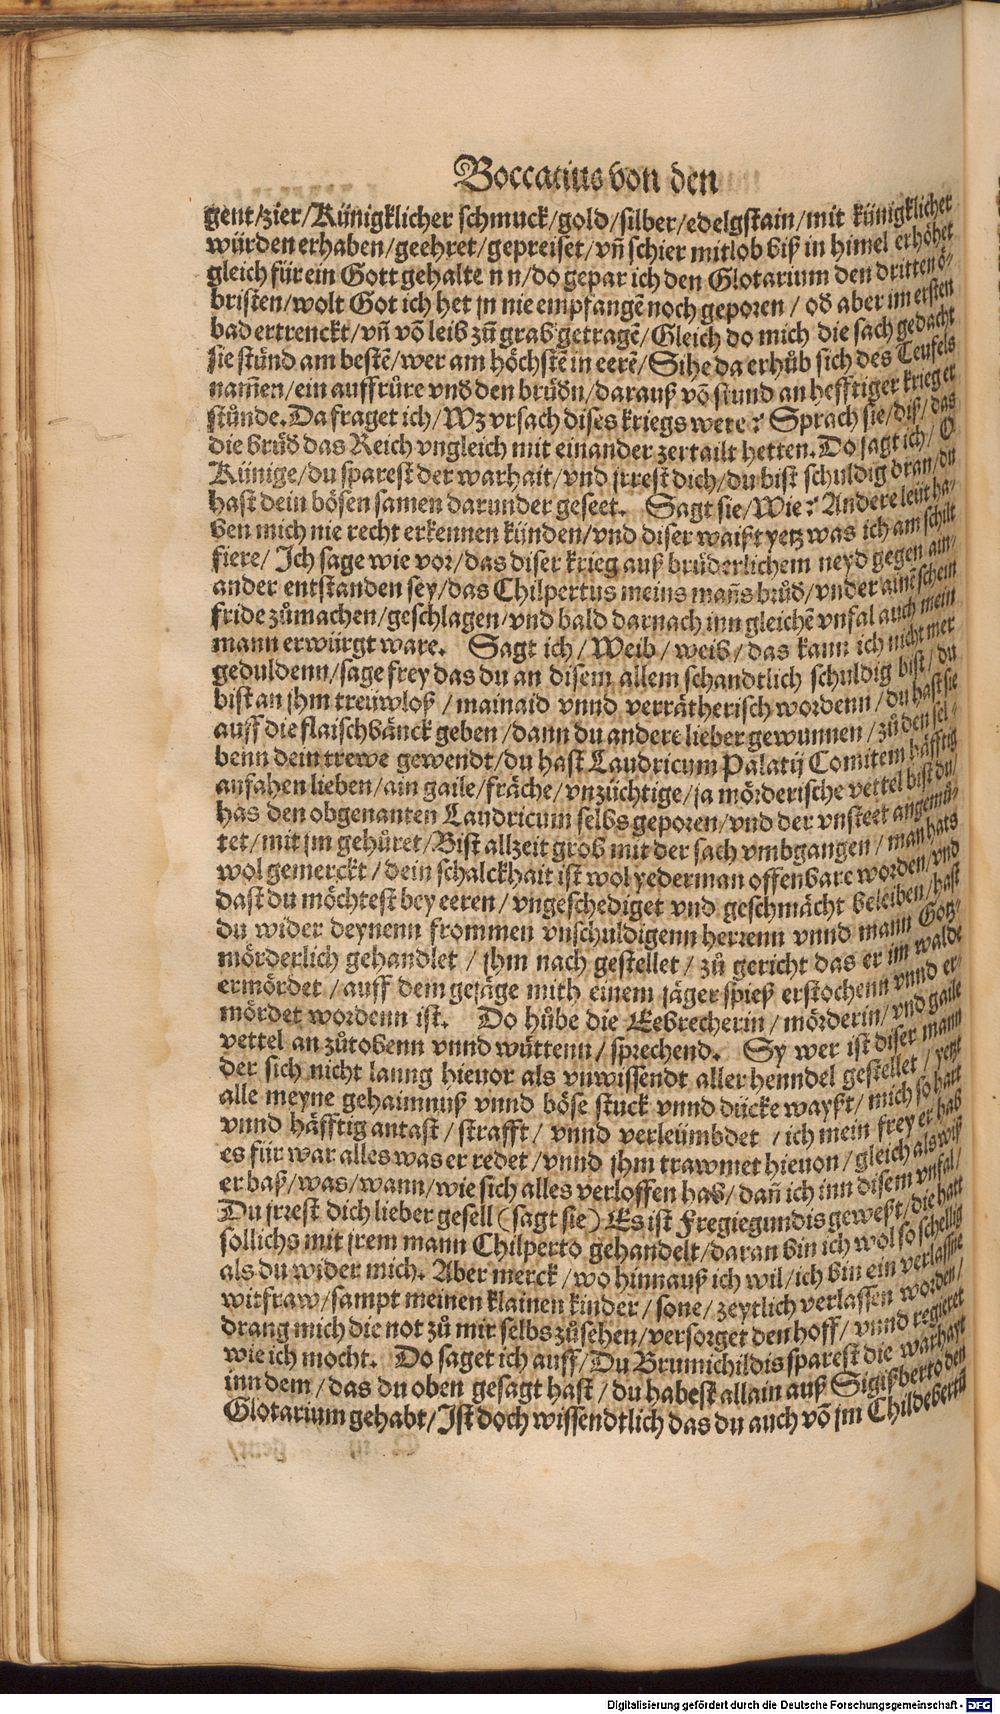 Boccatius von den
gent/zier/Künigklicher schmuck/gold/silber/edelgstain/mit künigklicher
würden erhaben/geehret/gepreiset/vñ schier mit lob biß in himel erhöhet
gleich für ein Gott gehalte n n/do gepar ich den Glotarium den dritten ö-
bristen/wolt Got ich het jn nie empfangẽ noch geporen / oď aber im ersten
bad ertrenckt/vñ võ leib zũ grab getragẽ/Gleich do mich die sach gedacht
sie stůnd am bestẽ/wer am höchstẽ in eerẽ/Sihe da erhůb sich des Teufels
nam̃en/ein auffrůre vnď den brüďn/darauß võ stund an hefftiger krieg er
stůnde. Da fraget ich/Wz vrsach dises kriegs were? Sprach sie/diß/das
die brüď das Reich vngleich mit einander zertailt hetten. Do sagt ich/O
Künige/du sparest der warhait/vnd jrrest dich/du bist schuldig dran/du
hast dein bösen samen darunder geseet. Sagt sie/Wie? Andere leüt ha-
ben mich nie recht erkennen künden/vnd diser waißt yetz was ich am schilt
fiere/ Ich sage wie vor/das diser krieg auß brüderlichem neyd gegen ain-
ander entstanden sey/das Chilpertus meins mañs brůď/vnder ainẽ schein
fride zůmachen/geschlagen/vnd bald darnach inn gleichẽ vnfal auch mein
mann erwürgt ware. Sagt ich/Weib/weib/das kann ich nicht mer
geduldenn/sage frey das du an disem allem schandtlich schuldig bist/du
bist an jhm treüwloß/mainaid vnnd verrätherisch wordenn/du hast sie
auff die flaischbänck geben/dann du andere lieber gewunnen/zů den sel-
benn dein trewe gewendt/du hast Laudricum Palatij Comitem häfftig
anfahen lieben/ain gaile/fräche/vnzüchtige/ja mörderische vettel bist du/
has den obgenanten Laudricum selbs geporen/vnd der vnsteet angemů-
tet/mit jm gehůret/Bist allzeit grob mit der sach vmbgangen/man hats
wol gemerckt/dein schalckhait ist wol yederman offenbare worden/vnd
dast du möchtest bey eeren/vngeschediget vnd geschmächt beleiben/hast
du wider deynenn frommen vnschuldigenn herrenn vnnd mann Gotz-
mörderlich gehandlet/jhm nach gestellet/zů gericht das er im walde
ermördet/auff dem gejäge mith einem jäger spieß erstochenn vnnd er/
mördet wordenn ist. Do hůbe die Eebrecherin/mörderin/vnd gaile
vettel an zůtobenn vnnd wüttenn/sprechend. Sy wer ist diser mann
der sich nicht lanng hieuor als vnwissendt aller henndel gestellet/yetzt
alle meyne gehaimnuß vnnd böse stuck vnnd dücke wayßt/mich so hart
vnnd häfftig antast/strafft/vnnd verleümbdet/ich mein frey er hab
es für war alles was er redet/vnnd jhm trawmet hieuon/gleich als wiß
er baß/was/wann/wie sich alles verloffen hab/dañ ich inn disem vnfal/
Du jrrest dich lieber gesell (sagt sie) Es ist Fregiegundis geweßt/die hatt
sollichs mit jrem mann Chilperto gehandelt/daran bin ich wol so schellig
als du wider mich. Aber merck/wo hinnauß ich wil/ich bin ein verlaßne
witfraw/sampt meinen klainen kinder/sone/zeytlich verlassen worden/
drang mich die not zů mir selbs zůsehen/versorget den hoff/vnnd regieret
wie ich mocht. Do saget ich auff/Du Brumichildis sparest die warhayt
inn dem/das du oben gesagt hast/du habest allain auß Sigißberto den
Glotarium gehabt/Ist doch wissendtlich das du auch võ jm Childebertũ